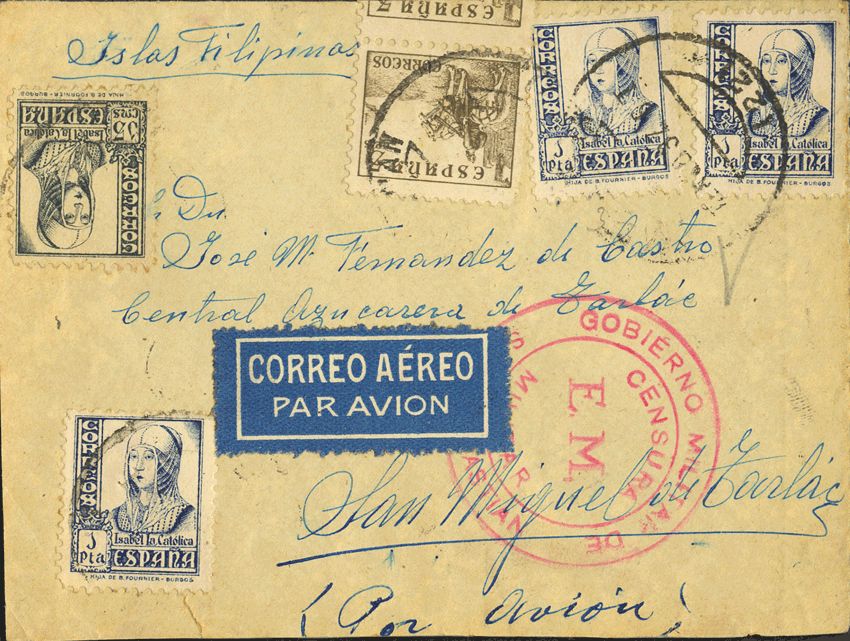 Islas Filipinas
ESPAÑA
1
CORREOS
ESPAÑA
1
CORREOS
1 Pta
Isabel la Católica
ESPAÑA
HIJA DE B. FOURNIER - BURGOS
CORREOS
1 Pta
Isabel la Católica
ESPAÑA
HIJA DE B. FOURNIER - BURGOS
CORREOS
25 cts
Isabel la Católica
ESPAÑA
HIJA DE B. FOURNIER - BURGOS
José M. Fernandez de Castro
Central Azucarera de Tarlác
CORREO AÉREO
PAR AVION
GOBIERNO MILITAR DE
CENSURA
MILITAR
E.M.
CORREOS
1 Pta
Isabel la Católica
ESPAÑA
HIJA DE B. FOURNIER - BURGOS
San Miguel de Tarlác
(Por avión)